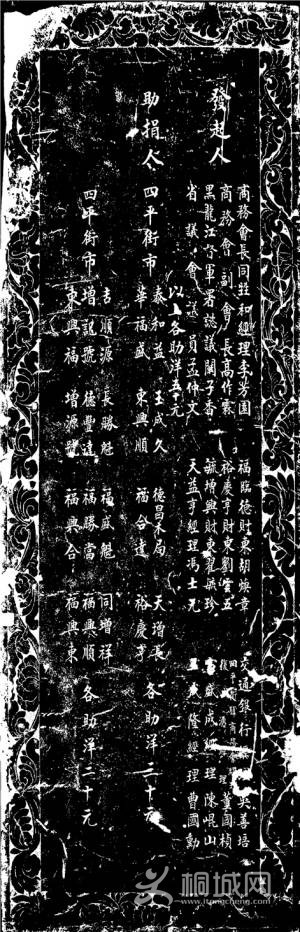 發起人
商務會長同益和經理李芳園
商務會副會長高作霖
黑龍江督軍署諮議閻子香
省議會議員孟傳文
福臨德財東胡煥章
裕慶亨財東劉雲五
毓增興財東翟藥珍
天益亨經理馮士元
交通銀行 吳善培
富盛成經理陳崐山
隆經理曹國勳
以上各助洋五十元
助捐人
四平街市
泰和益 玉成久 德昌木局 天增長
華福盛 東興順 福合達 裕慶亨
各助洋三十元
四平街市
吉順源 長勝魁 福盛魁 同增祥
增記號 德豐達 福勝當 福興順
東興福 增源號 福興合 福興東
各助洋二十元
桐城网
www.itongcheng.com